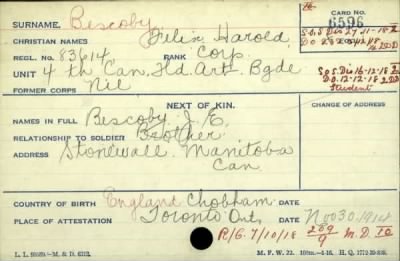 SURNAME. Bescoby
CARD NO.
6596
CHRISTIAN NAMES Felix Harold,
REGL. NO. 83614 RANK Corp.
UNIT 4th Can. Fld. Art. Bgde
FORMER CORPS Nil
S.O.S. Dis 27-11-18
S.O.S. Dis 16-12-18
D.O. 12-12-18
Student
NEXT OF KIN.
CHANGE OF ADDRESS
NAMES IN FULL Bescoby J. E.
RELATIONSHIP TO SOLDIER Brother
ADDRESS Stonewall Manitoba
Can
COUNTRY OF BIRTH England Chobham DATE
PLACE OF ATTESTATION Toronto Ont. DATE Nov 30. 1914
R/G. 7/10/18 259/9 M.D. 10
M. F. W. 22.